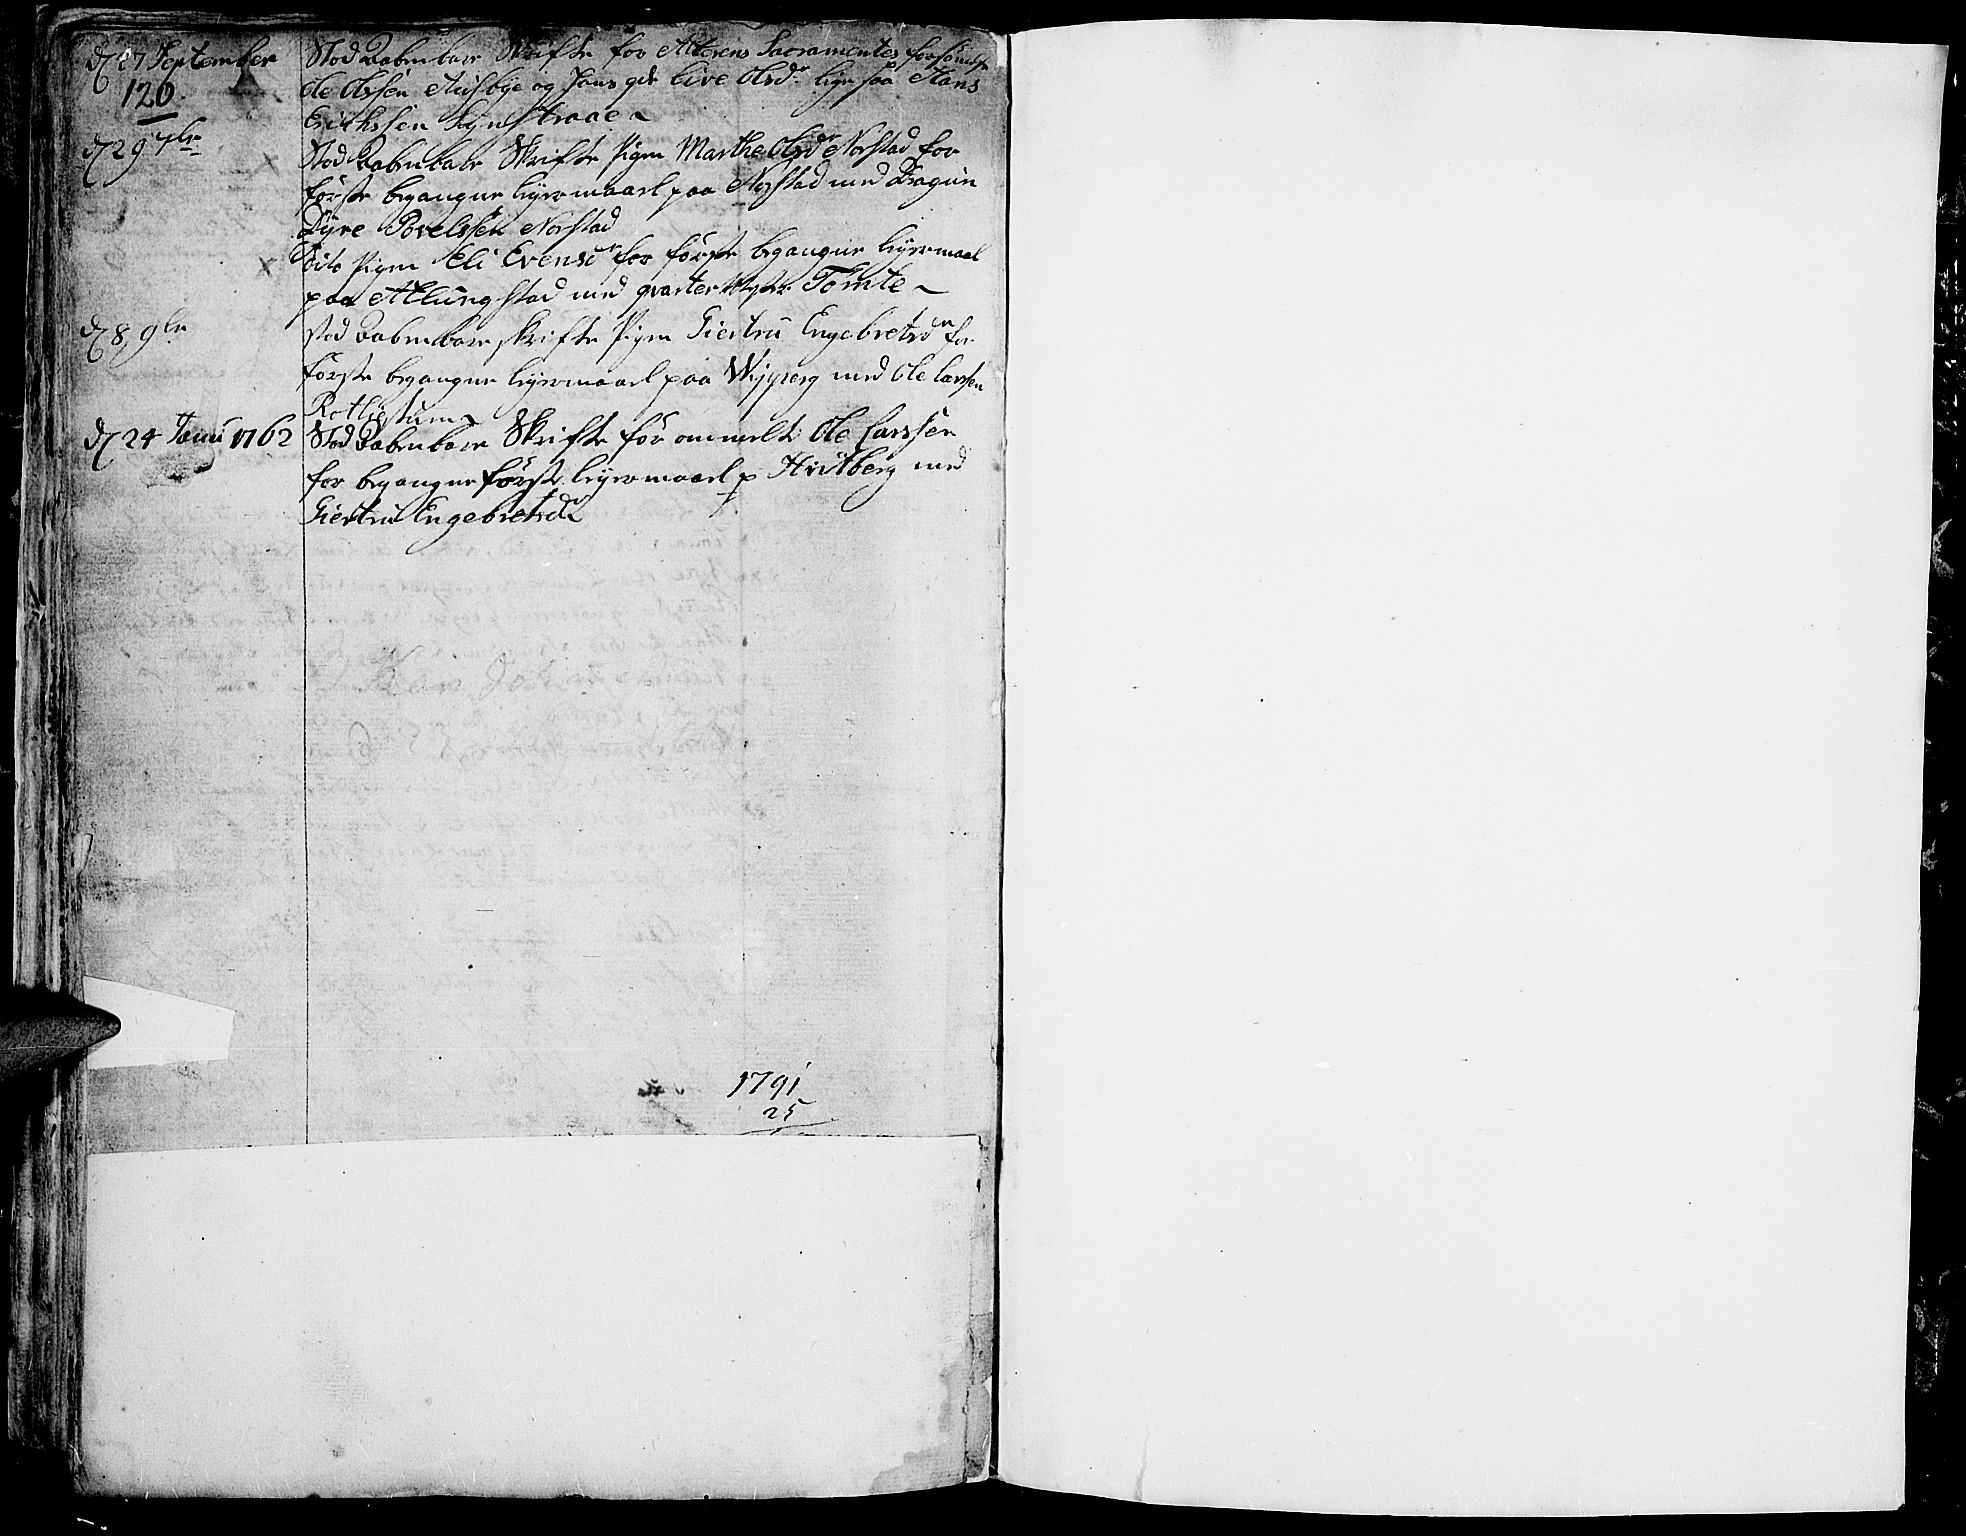 d 27 September
120
Stod aabenbare Skrifte for Alterens Sacramentes forsömelse
Ole Olssen og hans qde Live Olsdr ligesaa Hans
Erichssen
d 29 7br
Stod aabenbare Skrifte Pigen Marthe Olsdr Norstad for
første begangne leyermaael paa Norstad med Dragun
Dyre Povelssen Norstad
Dito Pigen Eli Evensdr for første begangne leyermaal
paa Atlungstad med qvartermester Tomte
d 8 9br
stod aabenbare skrifte Pigen Giertru Engebretsdr for
første begangne leyermaael paa Wijperg med Ole Larssen
d 24 Janu 1762
Stod aabenbare Skrifte for ommelte Ole Larssen
for begangne første leyermaael p med
Giertru Engebretsdr
1791
25